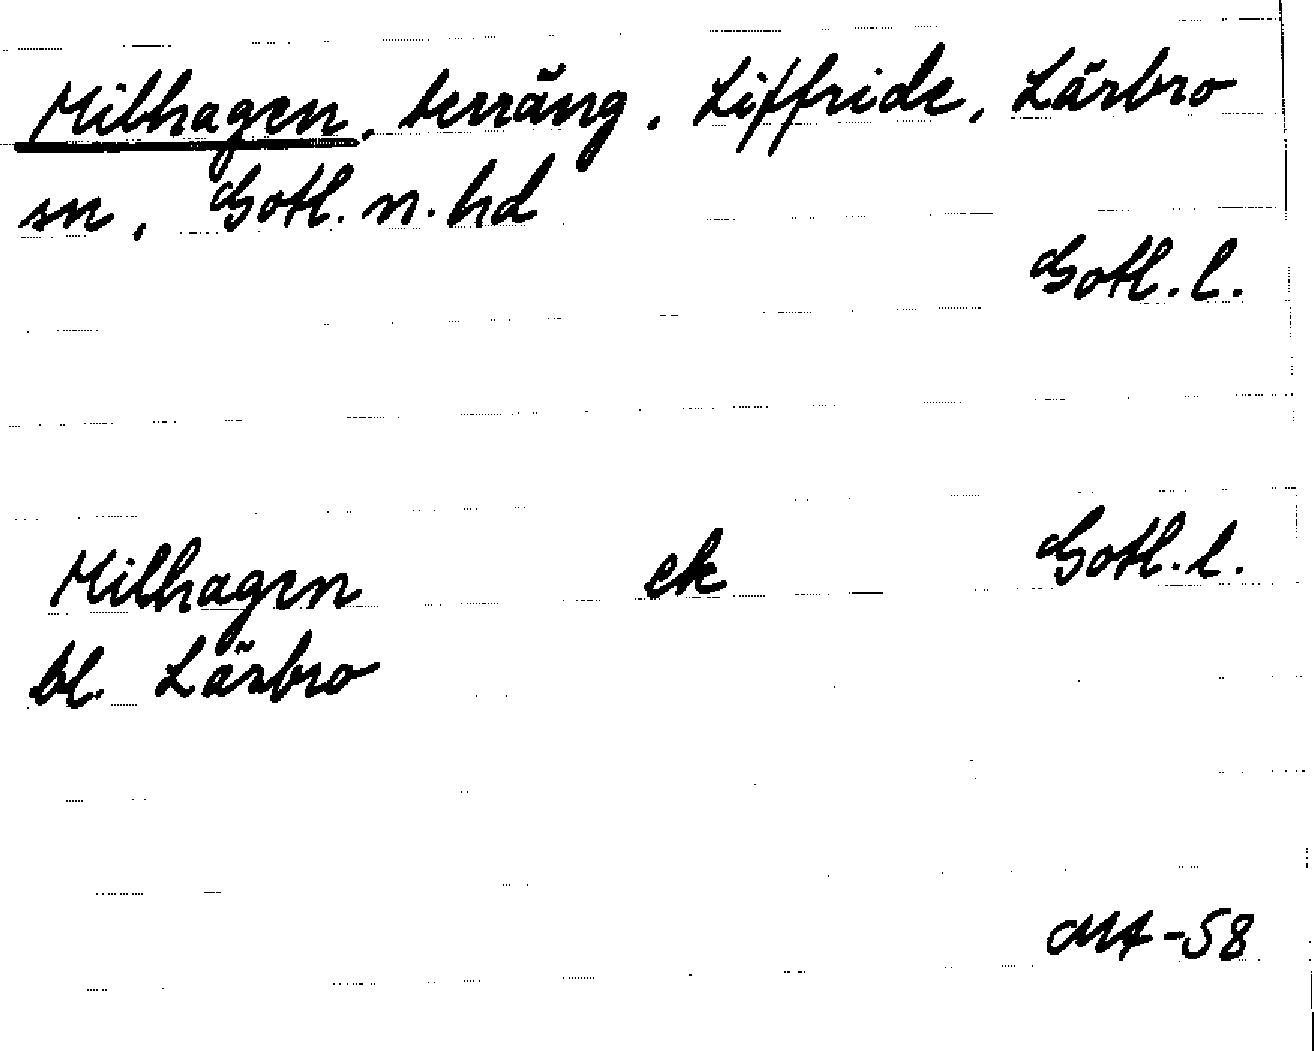 Milhagen, terräng, Liffride, Lärbro
sn, Gotl. n. hd
Gotl. l.
Milhagen ek Gotl. l.
bl. Lärbro
MA-58